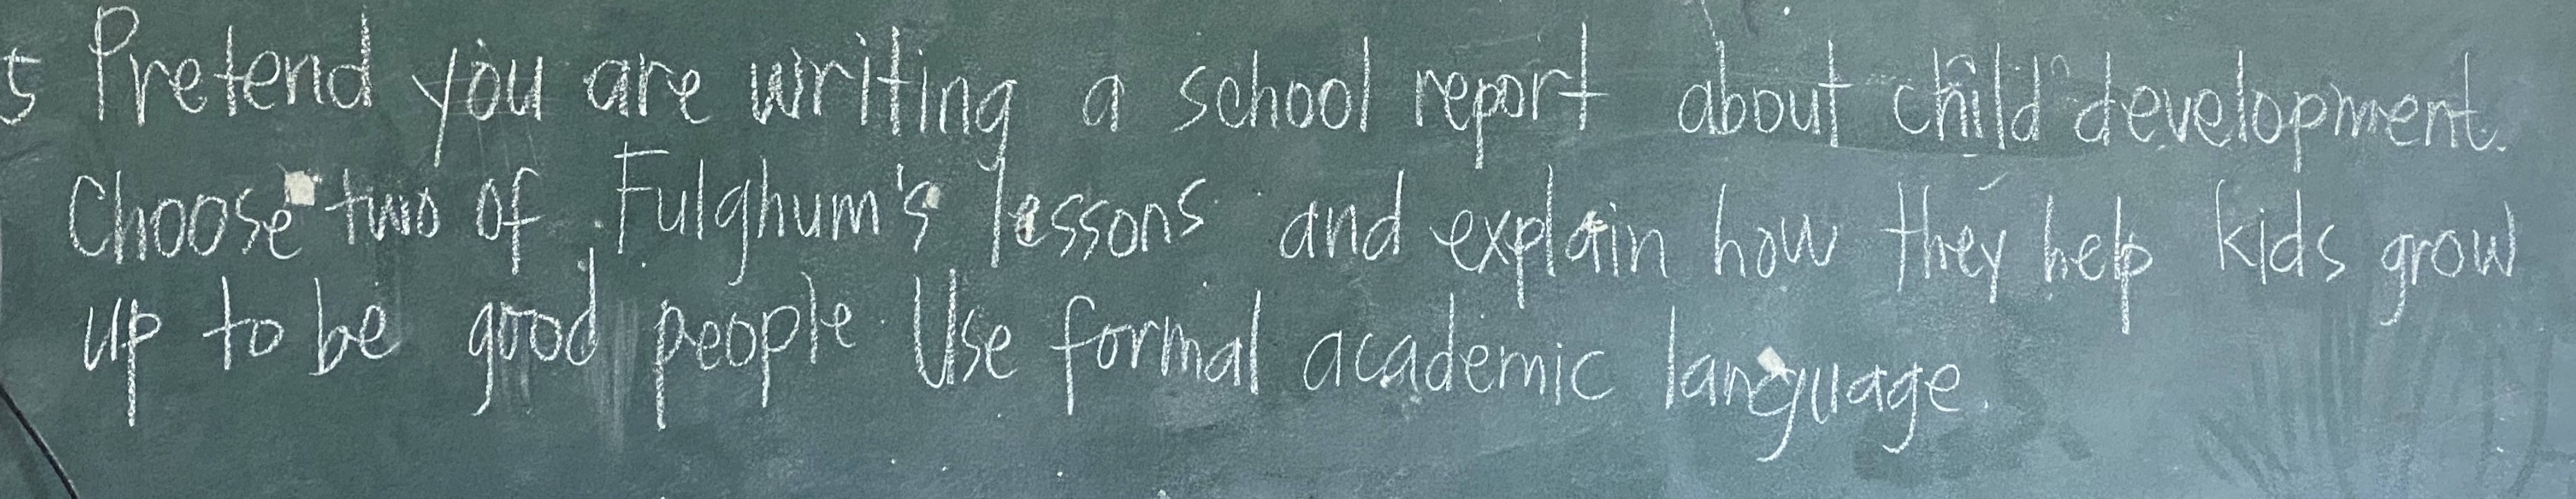 5 Pretend you are writing a school report about child development.
Choose two of Fulghum's lessons and explain how they help kids grow
up to be good people. Use formal academic language.